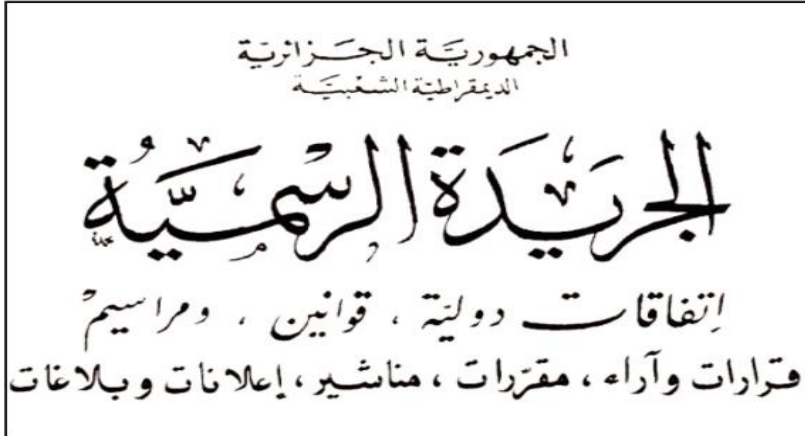 الجمهوريّة الجزائريّة
الديمقراطيّة الشعبيّة
الجريدة الرسميّة
إتفاقات دوليّة ، قوانين ، ومراسيم
قرارات وآراء ، مقرّرات ، مناشير ، إعلانات وبلاغات